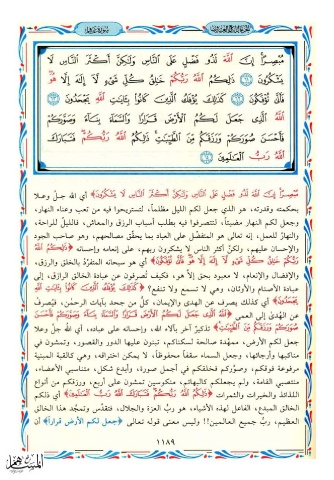 سورة غافر
مُبْصِرًا إِنَّ اللَّهَ لَذُو فَضْلٍ عَلَى النَّاسِ وَلَكِنَّ أَكْثَرَ النَّاسِ لَا
يَشْكُرُونَ ﴿٦١﴾ ذَلِكُمُ اللَّهُ رَبُّكُمْ خَالِقُ كُلِّ شَيْءٍ لَا إِلَهَ إِلَّا هُوَ
فَأَنَّى تُؤْفَكُونَ ﴿٦٢﴾ كَذَلِكَ يُؤْفَكُ الَّذِينَ كَانُوا بِآيَاتِ اللَّهِ يَجْحَدُونَ ﴿٦٣﴾
اللَّهُ الَّذِي جَعَلَ لَكُمُ الْأَرْضَ قَرَارًا وَالسَّمَاءَ بِنَاءً وَصَوَّرَكُمْ
فَأَحْسَنَ صُوَرَكُمْ وَرَزَقَكُمْ مِنَ الطَّيِّبَاتِ ذَلِكُمُ اللَّهُ رَبُّكُمْ فَتَبَارَكَ
اللَّهُ رَبُّ الْعَالَمِينَ ﴿٦٤﴾
مُبْصِرًا إِنَّ اللَّهَ لَذُو فَضْلٍ عَلَى النَّاسِ وَلَكِنَّ أَكْثَرَ النَّاسِ لَا يَشْكُرُونَ﴾ أي الله جلّ وعلا
بحكمته وقدرته، هو الذي جعل لكم الليل مظلماً، لتستريحوا فيه من تعب وعناء النهار،
وجعل لكم النهار مضيئاً، لتتصرفوا فيه بطلب أسباب الرزق والمعاش، فالليلُ للراحة،
والنهارُ للعمل، إنه تعالى هو المتفضّل على العباد بما يحقّق مصالحهم، وهو صاحب الجود
والإحسان عليهم، ولكنَّ أكثر الناس لا يشكرون ربهم، على إنعامه وإحسانه ﴿ذَلِكُمُ اللَّهُ
رَبُّكُمْ خَالِقُ كُلِّ شَيْءٍ لَا إِلَهَ إِلَّا هُوَ فَأَنَّى تُؤْفَكُونَ﴾ أي هو سبحانه المتفرّد بالخلق والرزق،
والإفضال والإنعام، لا معبود بحق إلّا هو، فكيف تُصرفون عن عبادة الخالق الرازق، إلى
عبادة الأصنام والأوثان، وهي لا تسمع ولا تنفع؟ ﴿كَذَلِكَ يُؤْفَكُ الَّذِينَ كَانُوا بِآيَاتِ اللَّهِ
يَجْحَدُونَ﴾ أي كذلك يصرف عن الهدى والإيمان، كلُّ من جحد بآيات الرحمٰن، فيُصرفُ
عن الهُدى إلى العمى ﴿اللَّهُ الَّذِي جَعَلَ لَكُمُ الْأَرْضَ قَرَارًا وَالسَّمَاءَ بِنَاءً وَصَوَّرَكُمْ فَأَحْسَنَ
صُوَرَكُمْ وَرَزَقَكُمْ مِنَ الطَّيِّبَاتِ﴾ تذكيرٌ آخر بآلاء الله، وإحسانه على عباده، أي الله جلّ وعلا
جعل لكم الأرض، ممهّدة صالحة لسكناكم، تبنون عليها الدور والقصور، وتمشون في
مناكبها وأرجائها، وجعل السماء سقفاً محفوظاً، لا يمكن اختراقه، وهي كالقبة المبنية
مرفوعة فوقكم، وصوّركم فخلقكم في أجمل صورة، وأبدع شكل، متناسبي الأعضاء،
منتصبي القامة، ولم يجعلكم كالبهائم، منكوسين تمشون على أربع، ورزقكم من أنواع
اللذائذ والخيرات والثمرات ﴿ذَلِكُمُ اللَّهُ رَبُّكُمْ فَتَبَارَكَ اللَّهُ رَبُّ الْعَالَمِينَ﴾ أي ذلكم
الخالق المبدع، الفاعل لهذه الأشياء، هو ربُّ العزة والجلال، فتقدَّس وتمجَّد هذا الخالق
العظيم، ربُّ جميع العالمين!! وليس معنى قوله تعالى ﴿جعل لكم الأرض قراراً﴾ أن
١١٨٩